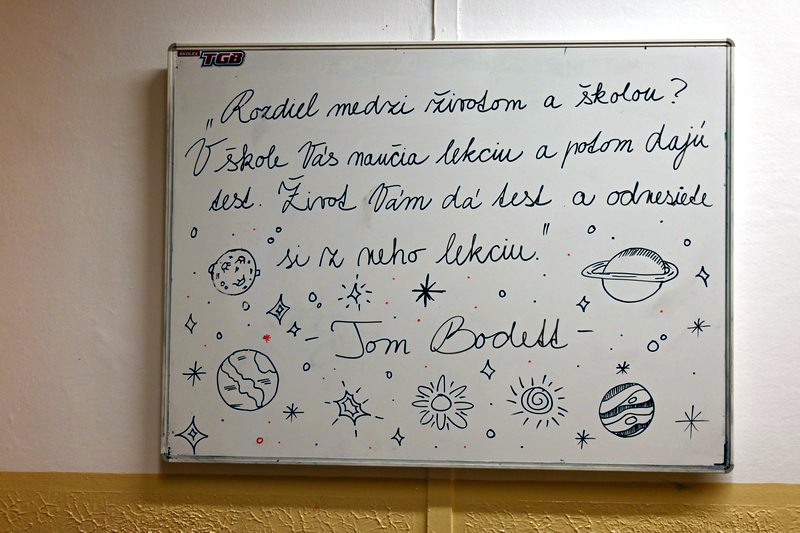 ŠKOLEX TGB
„Rozdiel medzi životom a školou?
V škole Vás naučia lekciu a potom dajú
test. Život Vám dá test a odnesiete
si z neho lekciu."
- Tom Bodett -